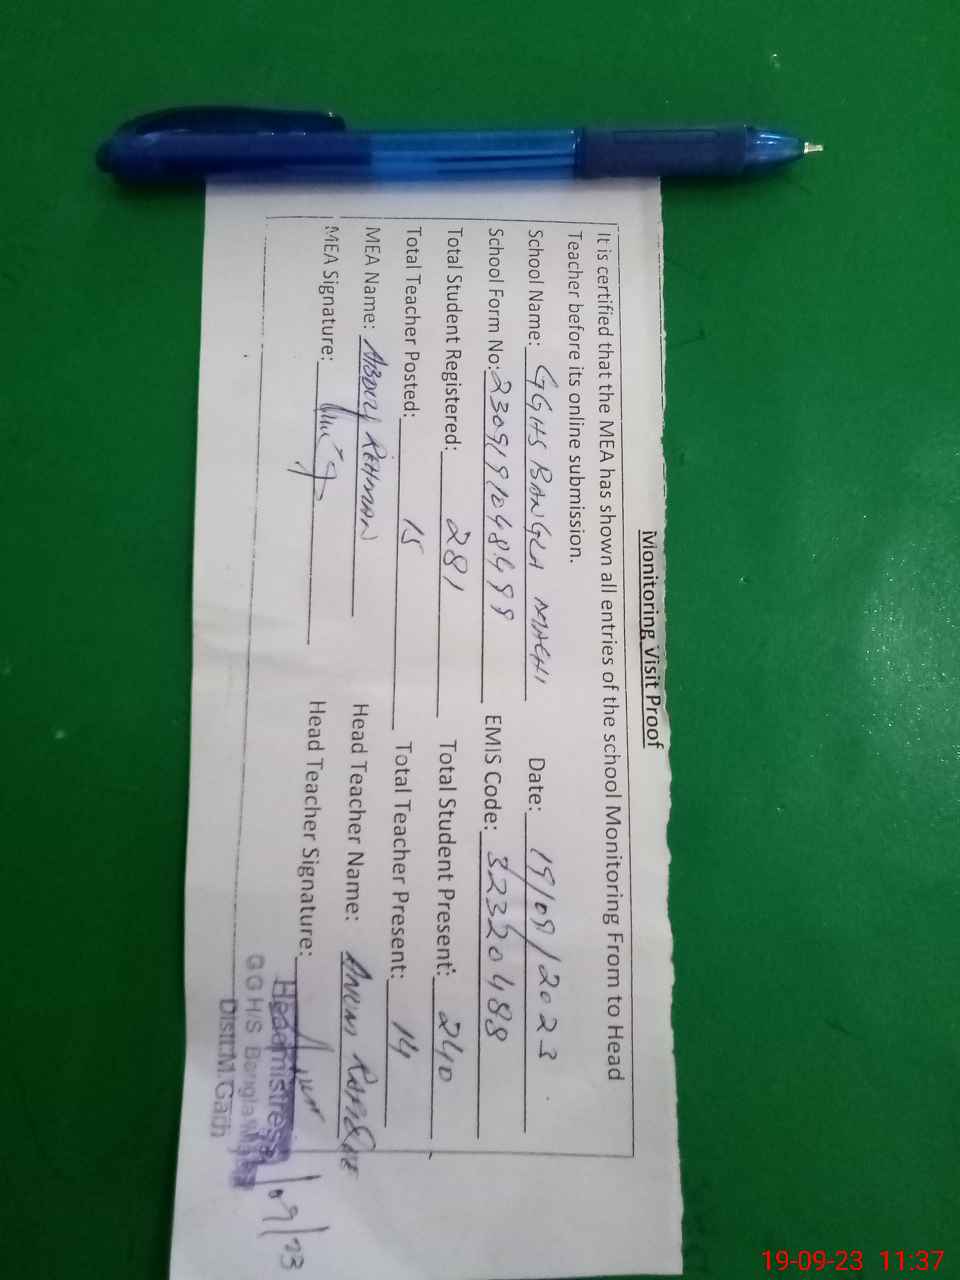 Monitoring Visit Proof
It is certified that the MEA has shown all entries of the school Monitoring From to Head
Teacher before its online submission.
School Name: GGHS BANGLA MACHI Date: 19/09/2023
School Form No: EMIS Code: 32320488
Total Student Registered: 281 Total Student Present: 240
Total Teacher Posted: 15 Total Teacher Present: 14
MEA Name: ABDUL REHMAN Head Teacher Name:
MEA Signature: Head Teacher Signature:
Headmistress
GG H/S Bangla
Distt.M.Garh
19-09-23 11:37